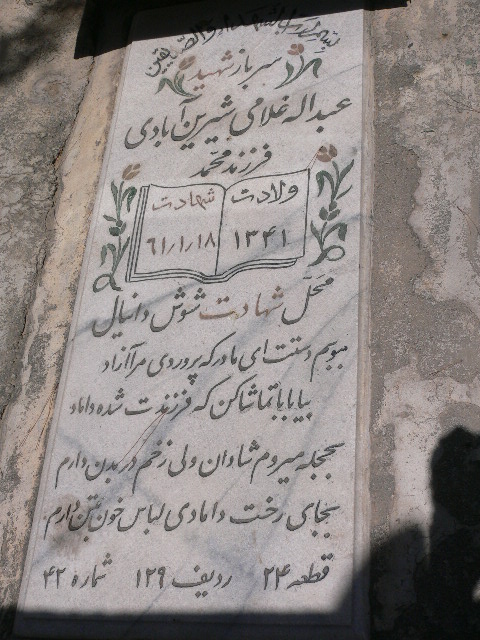 بسم رب الشهداء و الصدیقین
سرباز شهید
عبداله غلامی شیرین آبادی
فرزند محمد
ولادت شهادت
۱۳۴۱ ۶۱/۱/۱۸
محل شهادت شوش دانیال
ببوسم دستت ای مادر که پروردی مرا آزاد
بیا بابا تماشا کن که فرزندت شده داماد
بحجله میروم شادان ولی زخم در بدن دارم
بجای رخت دامادی لباس خون بتن دارم
قطعه ۲۴ ردیف ۱۲۹ شماره ۴۲